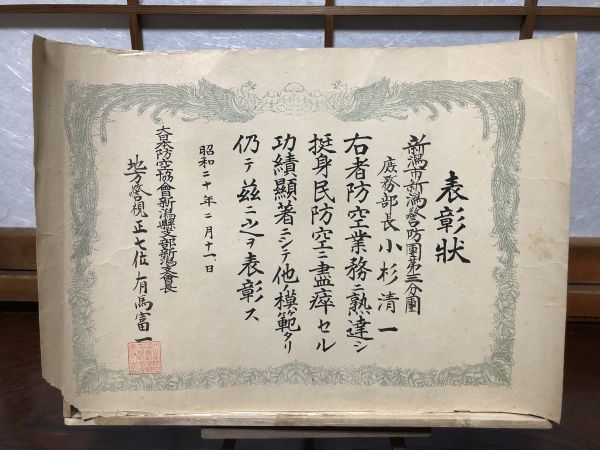 表彰狀
新潟市新潟警防團第三分團
庶務部長 小杉清一
右者防空業務ニ熟達シ
挺身民防空ニ盡瘁セル
功績顯著ニシテ他ノ模範タリ
仍テ茲ニ之ヲ表彰ス
昭和二十年二月十一日
大日本防空協會新潟縣支部新潟支會長
地方警視正七位有馬富一